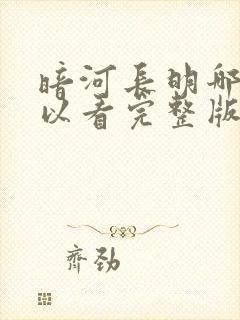 暗河長明哪
以看完整版
齊劲